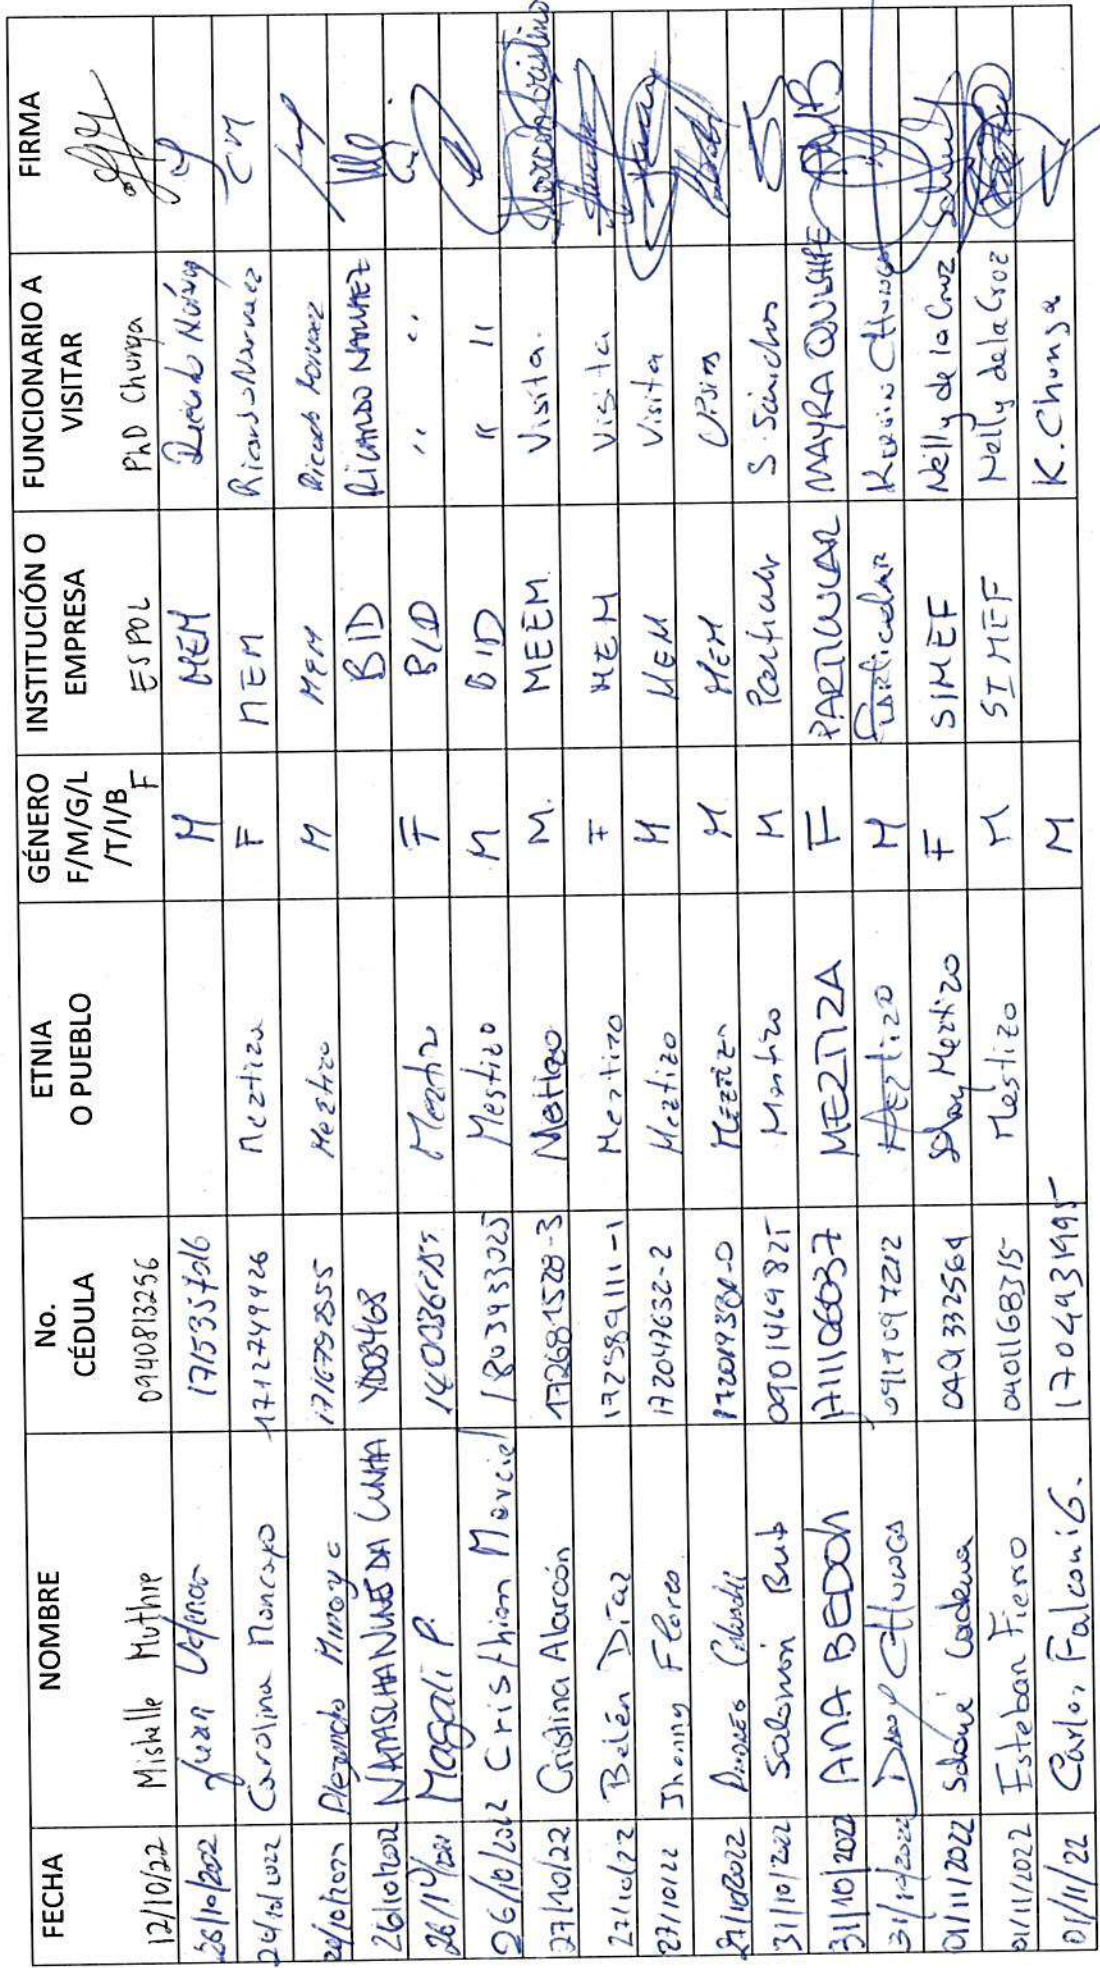 FECHA NOMBRE No. CÉDULA ETNIA O PUEBLO GÉNERO F/M/G/L/T/I/B INSTITUCIÓN O EMPRESA FUNCIONARIO A VISITAR FIRMA
12/10/22 Mishelle Muthre 0940813256 F ESPOL PhD Chunga
25/10/2022 Juan M MEM
26/10/2022 Carolina Moncayo 1712749426 Meztiza F MEM Ricardo Narvaez CM
Alejandro Meztizo M MEM Ricardo Narvaez
26/10/2022 NATASCHA NUNES DA CUNHA YD08468 BID RICARDO NARVAEZ
Magali P. F BID " "
26/10/2022 Cristhian Marcial 1803433025 Mestizo M BID " "
27/10/22 Cristina Alarcón 172681528-3 Mestizo M. MEEM. Visita.
27/10/22 Belén Díaz 172589111-1 Meztizo F MEM Visita
27/10/22 Jhonny Flores 172047632-2 Meztizo M MEM Visita
27/10/2022 M MEM
31/10/2022 Salomón Brito 0901469825 Mestizo M Particular S. Sánchez
31/10/2022 ANA BEDOYA 1711106037 MEZTIZA F PARTICULAR MAYRA QUISHPE
31/10/2022 CHUNGA 0917097212 Meztizo M Particular Kervin CHUNGA
01/11/2022 Salomé Cadena 0401332564 Meztizo F SIMEF Nelly de la Cruz
01/11/2022 Esteban Fierro 0401168315 Mestizo M SIMEF Nelly de la Cruz
01/11/22 Carlos Falconí G. 1704431995 M K. Chunga